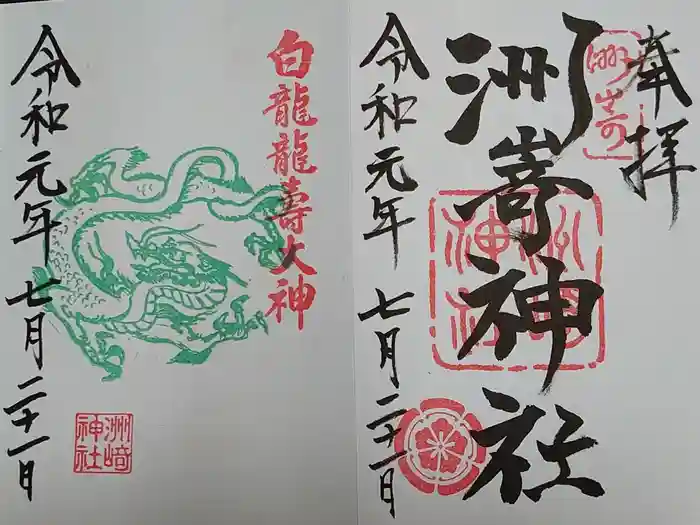 奉拝
洲嵜
洲嵜神社
洲嵜神社
令和元年 七月二十一日
白龍龍壽大神
令和元年 七月二十一日
洲﨑神社